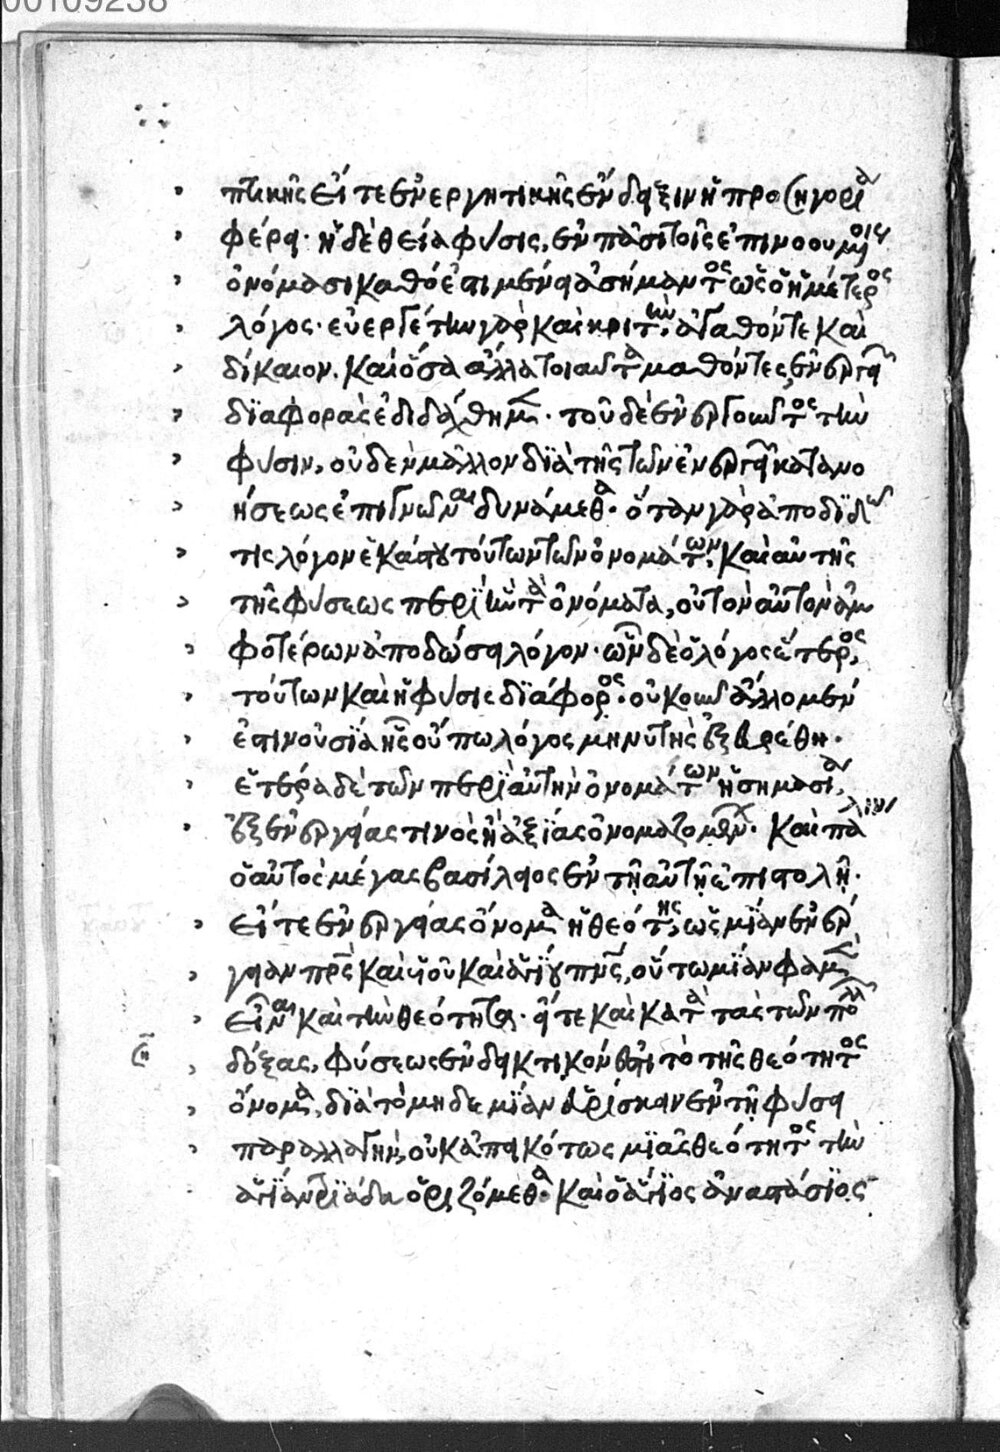 00109238
πτικῆς εἴτε ἐνεργητικῆς ἔνδειξιν ἡ προσηγορία
φέρει· ἡ δὲ θεία φύσις, ἐν πᾶσι τοῖς ἐπινοουμένοις
ὀνόμασι καθό ἐστι μένει ἀσήμαντος ὡς ὁ ἡμέτερος
λόγος· εὐεργέτην γὰρ καὶ κριτὴν, ἀγαθόν τε καὶ
δίκαιον, καὶ ὅσα ἄλλα τοιαῦτα μαθόντες, ἐνεργειῶν
διαφορὰς ἐδιδάχθημεν· τοῦ δὲ ἐνεργοῦντος τὴν
φύσιν, οὐδὲν μᾶλλον διὰ τῆς τῶν ἐνεργειῶν κατανο
ήσεως ἐπιγνῶναι δυνάμεθα· ὅταν γὰρ ἀποδιδῷ
τις λόγον ἑκάστου τούτων τῶν ὀνομάτων, καὶ αὐτῆς
τῆς φύσεως περὶ ἣν τὰ ὀνόματα, οὐ τὸν αὐτὸν ἀμ
φοτέρων ἀποδώσει λόγον· ὧν δὲ ὁ λόγος ἕτερος,
τούτων καὶ ἡ φύσις διάφορος· οὐκοῦν ἄλλο μέν
ἐστιν οὐσία ἧς οὔπω λόγος μηνυτὴς ἐξευρέθη·
ἑτέρα δὲ τῶν περὶ αὐτὴν ὀνομάτων ἡ σημασία,
ἐξ ἐνεργείας τινὸς ἢ ἀξίας ὀνομαζομένων· καὶ πάλιν
ὁ αὐτὸς μέγας βασίλειος ἐν τῇ αὐτῇ ἐπιστολῇ·
εἴτε ἐνεργείας ὄνομα ἡ θεότης, ὡς μίαν ἐνέρ
γειαν πατρὸς καὶ υἱοῦ καὶ ἁγίου πνεύματος, οὕτω μίαν φαμὲν
εἶναι καὶ τὴν θεότητα· εἴτε καὶ κατὰ τὰς τῶν πολλῶν
δόξας, φύσεως ἐνδεικτικόν ἐστι τὸ τῆς θεότητος
ὄνομα, διὰ τὸ μηδεμίαν εὑρίσκειν ἐν τῇ φύσει
παραλλαγὴν, οὐκ ἀπεικότως μιᾶς θεότητος τὴν
ἁγίαν τριάδα ὁριζόμεθα· καὶ ὁ ἅγιος ἀναστάσιος